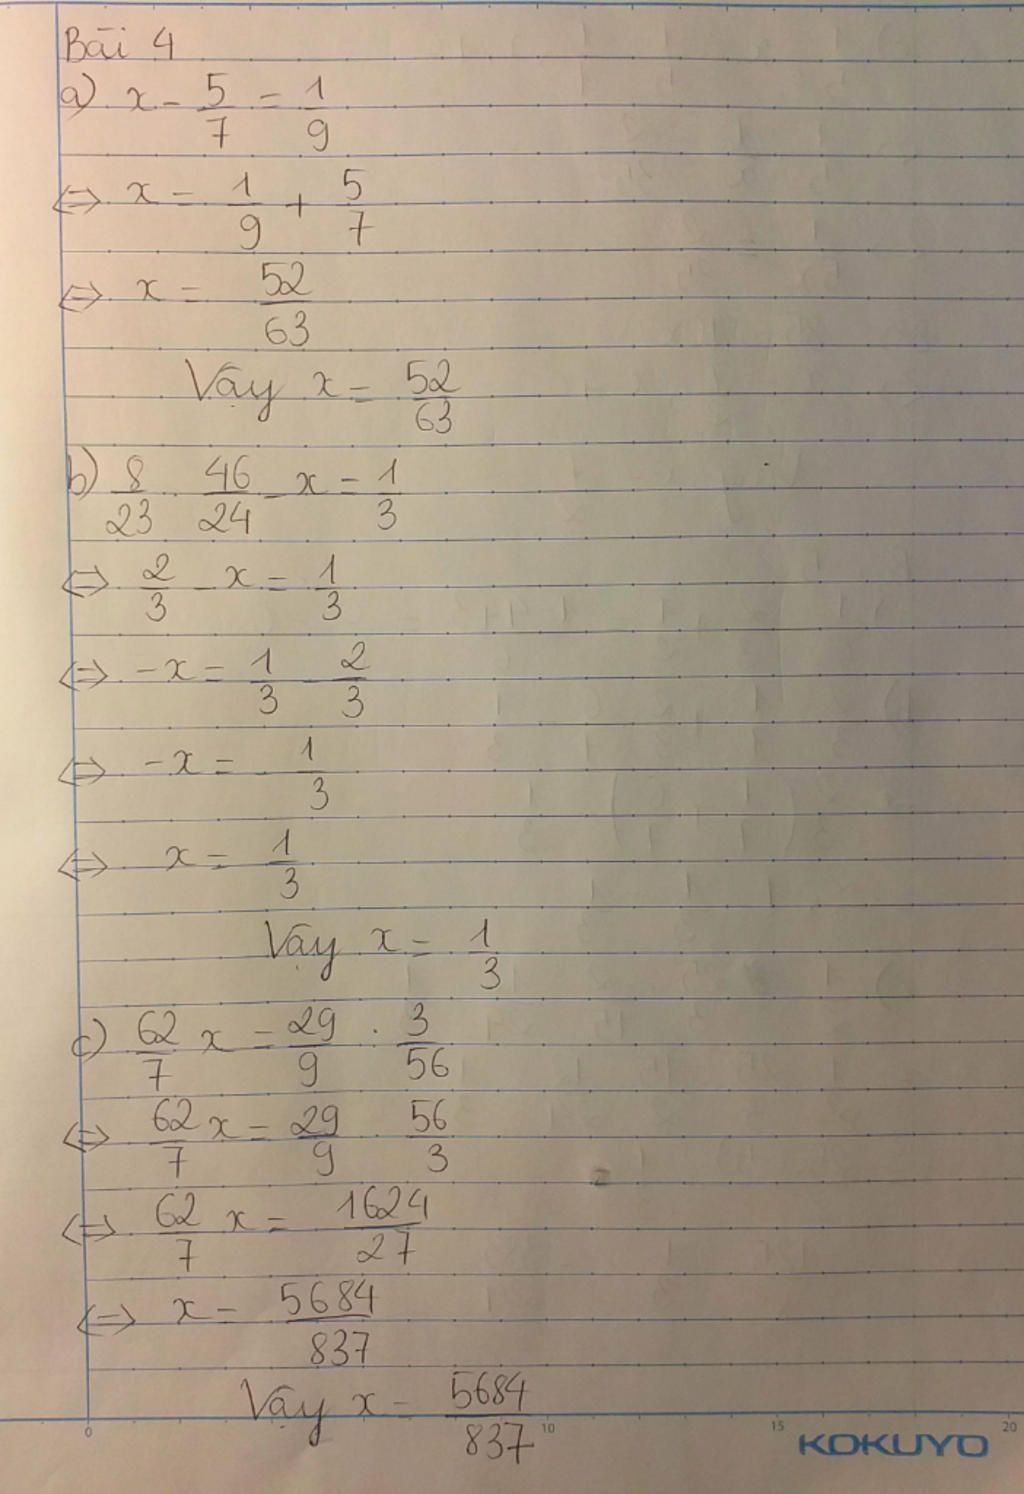 Bài 4
a) x - 5/7 = 1/9
⇔ x = 1/9 + 5/7
⇔ x = 52/63
Vậy x = 52/63
b) 8/23 . 46/24 - x = 1/3
⇔ 2/3 - x = 1/3
⇔ -x = 1/3 - 2/3
⇔ -x = - 1/3
⇔ x = 1/3
Vậy x = 1/3
c) 62/7 x = 29/9 : 3/56
⇔ 62/7 x = 29/9 . 56/3
⇔ 62/7 x = 1624/27
⇔ x = 5684/837
Vậy x = 5684/837
0 10 15 20
KOKUYO